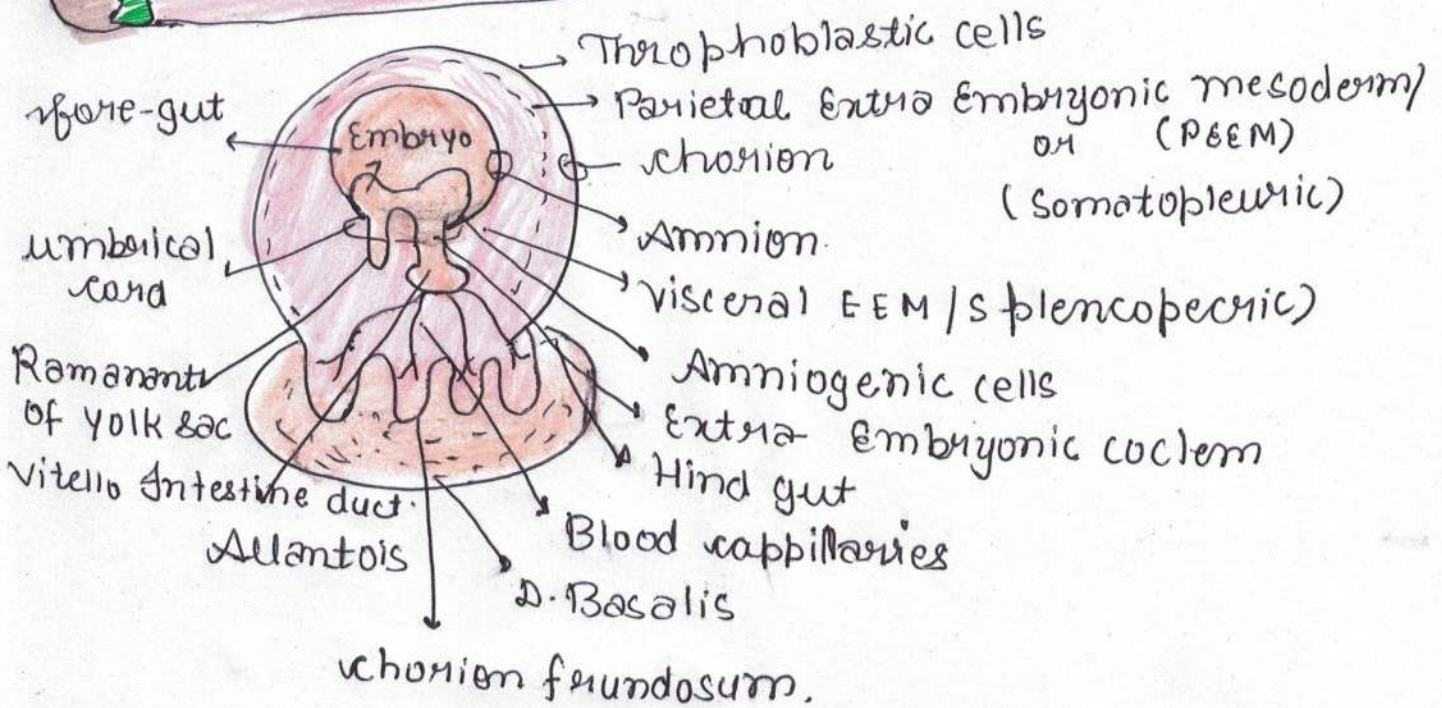 Throphoblastic cells
fore-gut
Embryo
Parietal Extra Embryonic mesoderm/
or (PEEM)
chorion
(Somatopleuric)
umbrical
cord
Amnion.
Visceral EEM/Splencopecric)
Ramanant
of yolk sac
Amniogenic cells
Extra Embryonic coclem
Hind gut
Vitello Intestine duct.
Allantois
Blood cappillaries
D. Basalis
chorion frundosum.